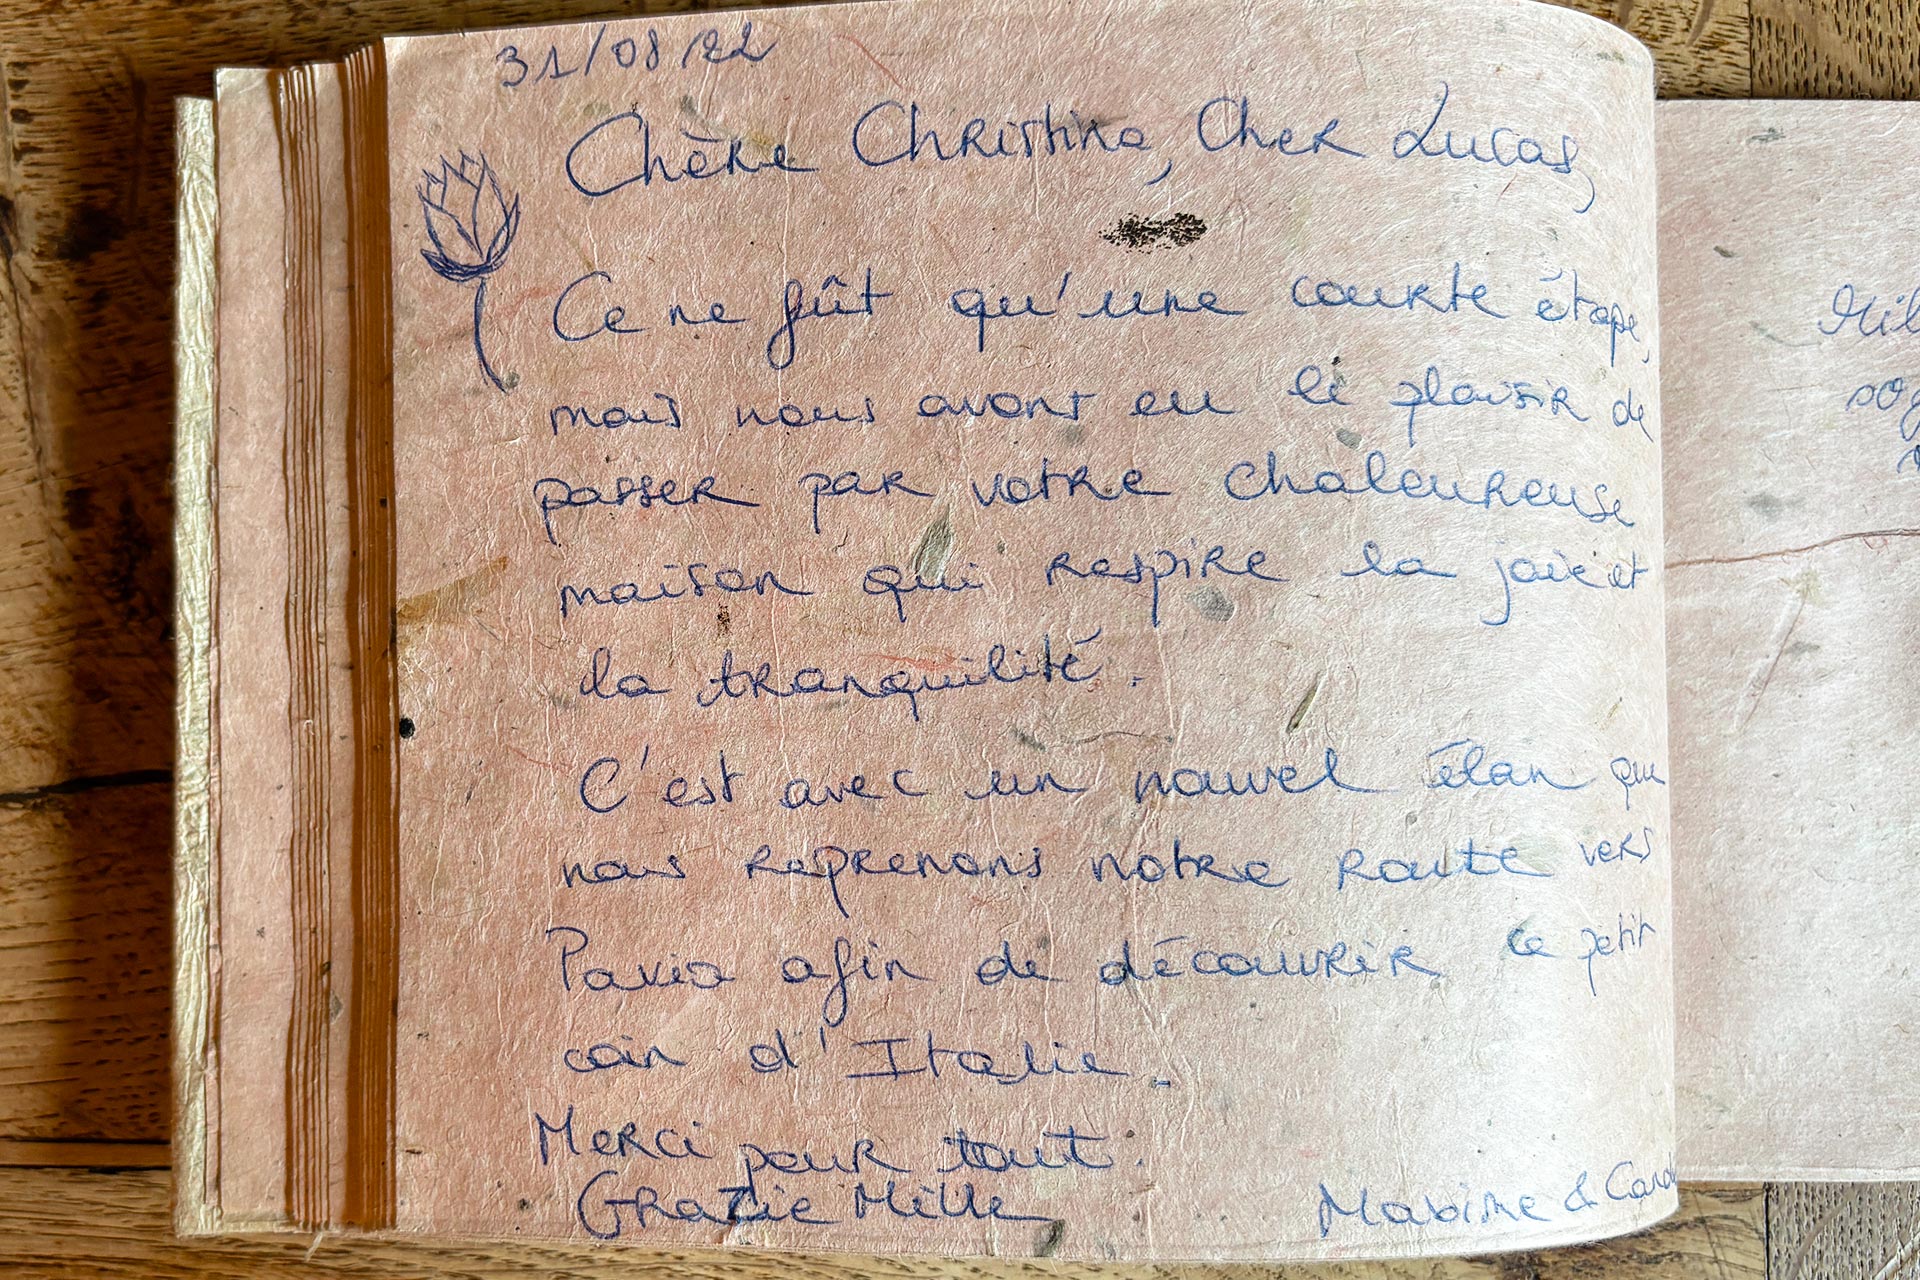 31/08/22
Chère Christine, Cher Lucas,
Ce ne fût qu'une courte étape,
mais nous avons eu le plaisir de
passer par votre chaleureuse
maison qui respire la joie et
la tranquilité.
C'est avec un nouvel élan que
nous reprenons notre route vers
Pavia afin de découvrir ce petit
coin d'Italie.
Merci pour tout.
Grazie Mille
&